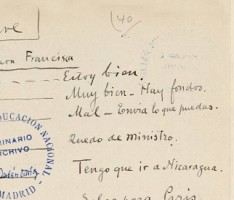 ve
(40)
Francisca
Estoy bien.
Muy bien - Hay fondos.
Mal - Envía lo que puedas.
Quedo de ministro.
Tengo que ir a Nicaragua.
París
EDUCACION NACIONAL
INARIO
RCHIVO
MADRID